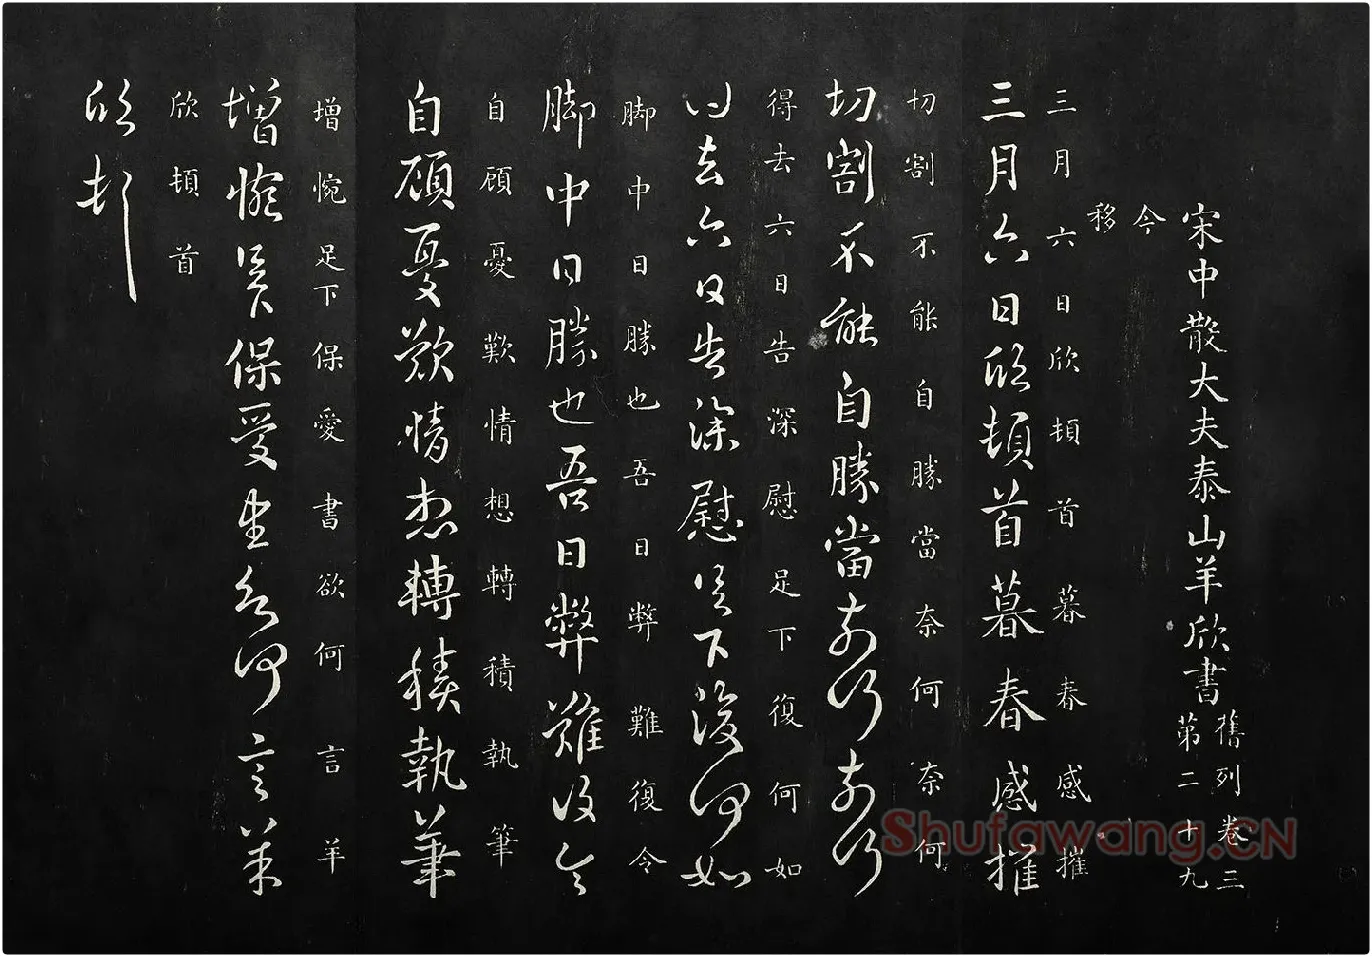 宋中散大夫泰山羊欣書
舊列卷三
第二十九
今
移
三月六日欣頓首暮春感摧
三月六日欣頓首暮春感摧
切割不能自勝當奈何奈何
切割不能自勝當奈何奈何
得去六日告深慰足下復何如
得去六日告深慰足下復何如
脚中日勝也吾日弊難復令
脚中日勝也吾日弊難復令
自顧憂歎情想轉積執筆
自顧憂歎情想轉積執筆
增惋足下保愛書欲何言羊
增惋足下保愛書欲何言羊
欣頓首
欣頓首
Shufawang.CN